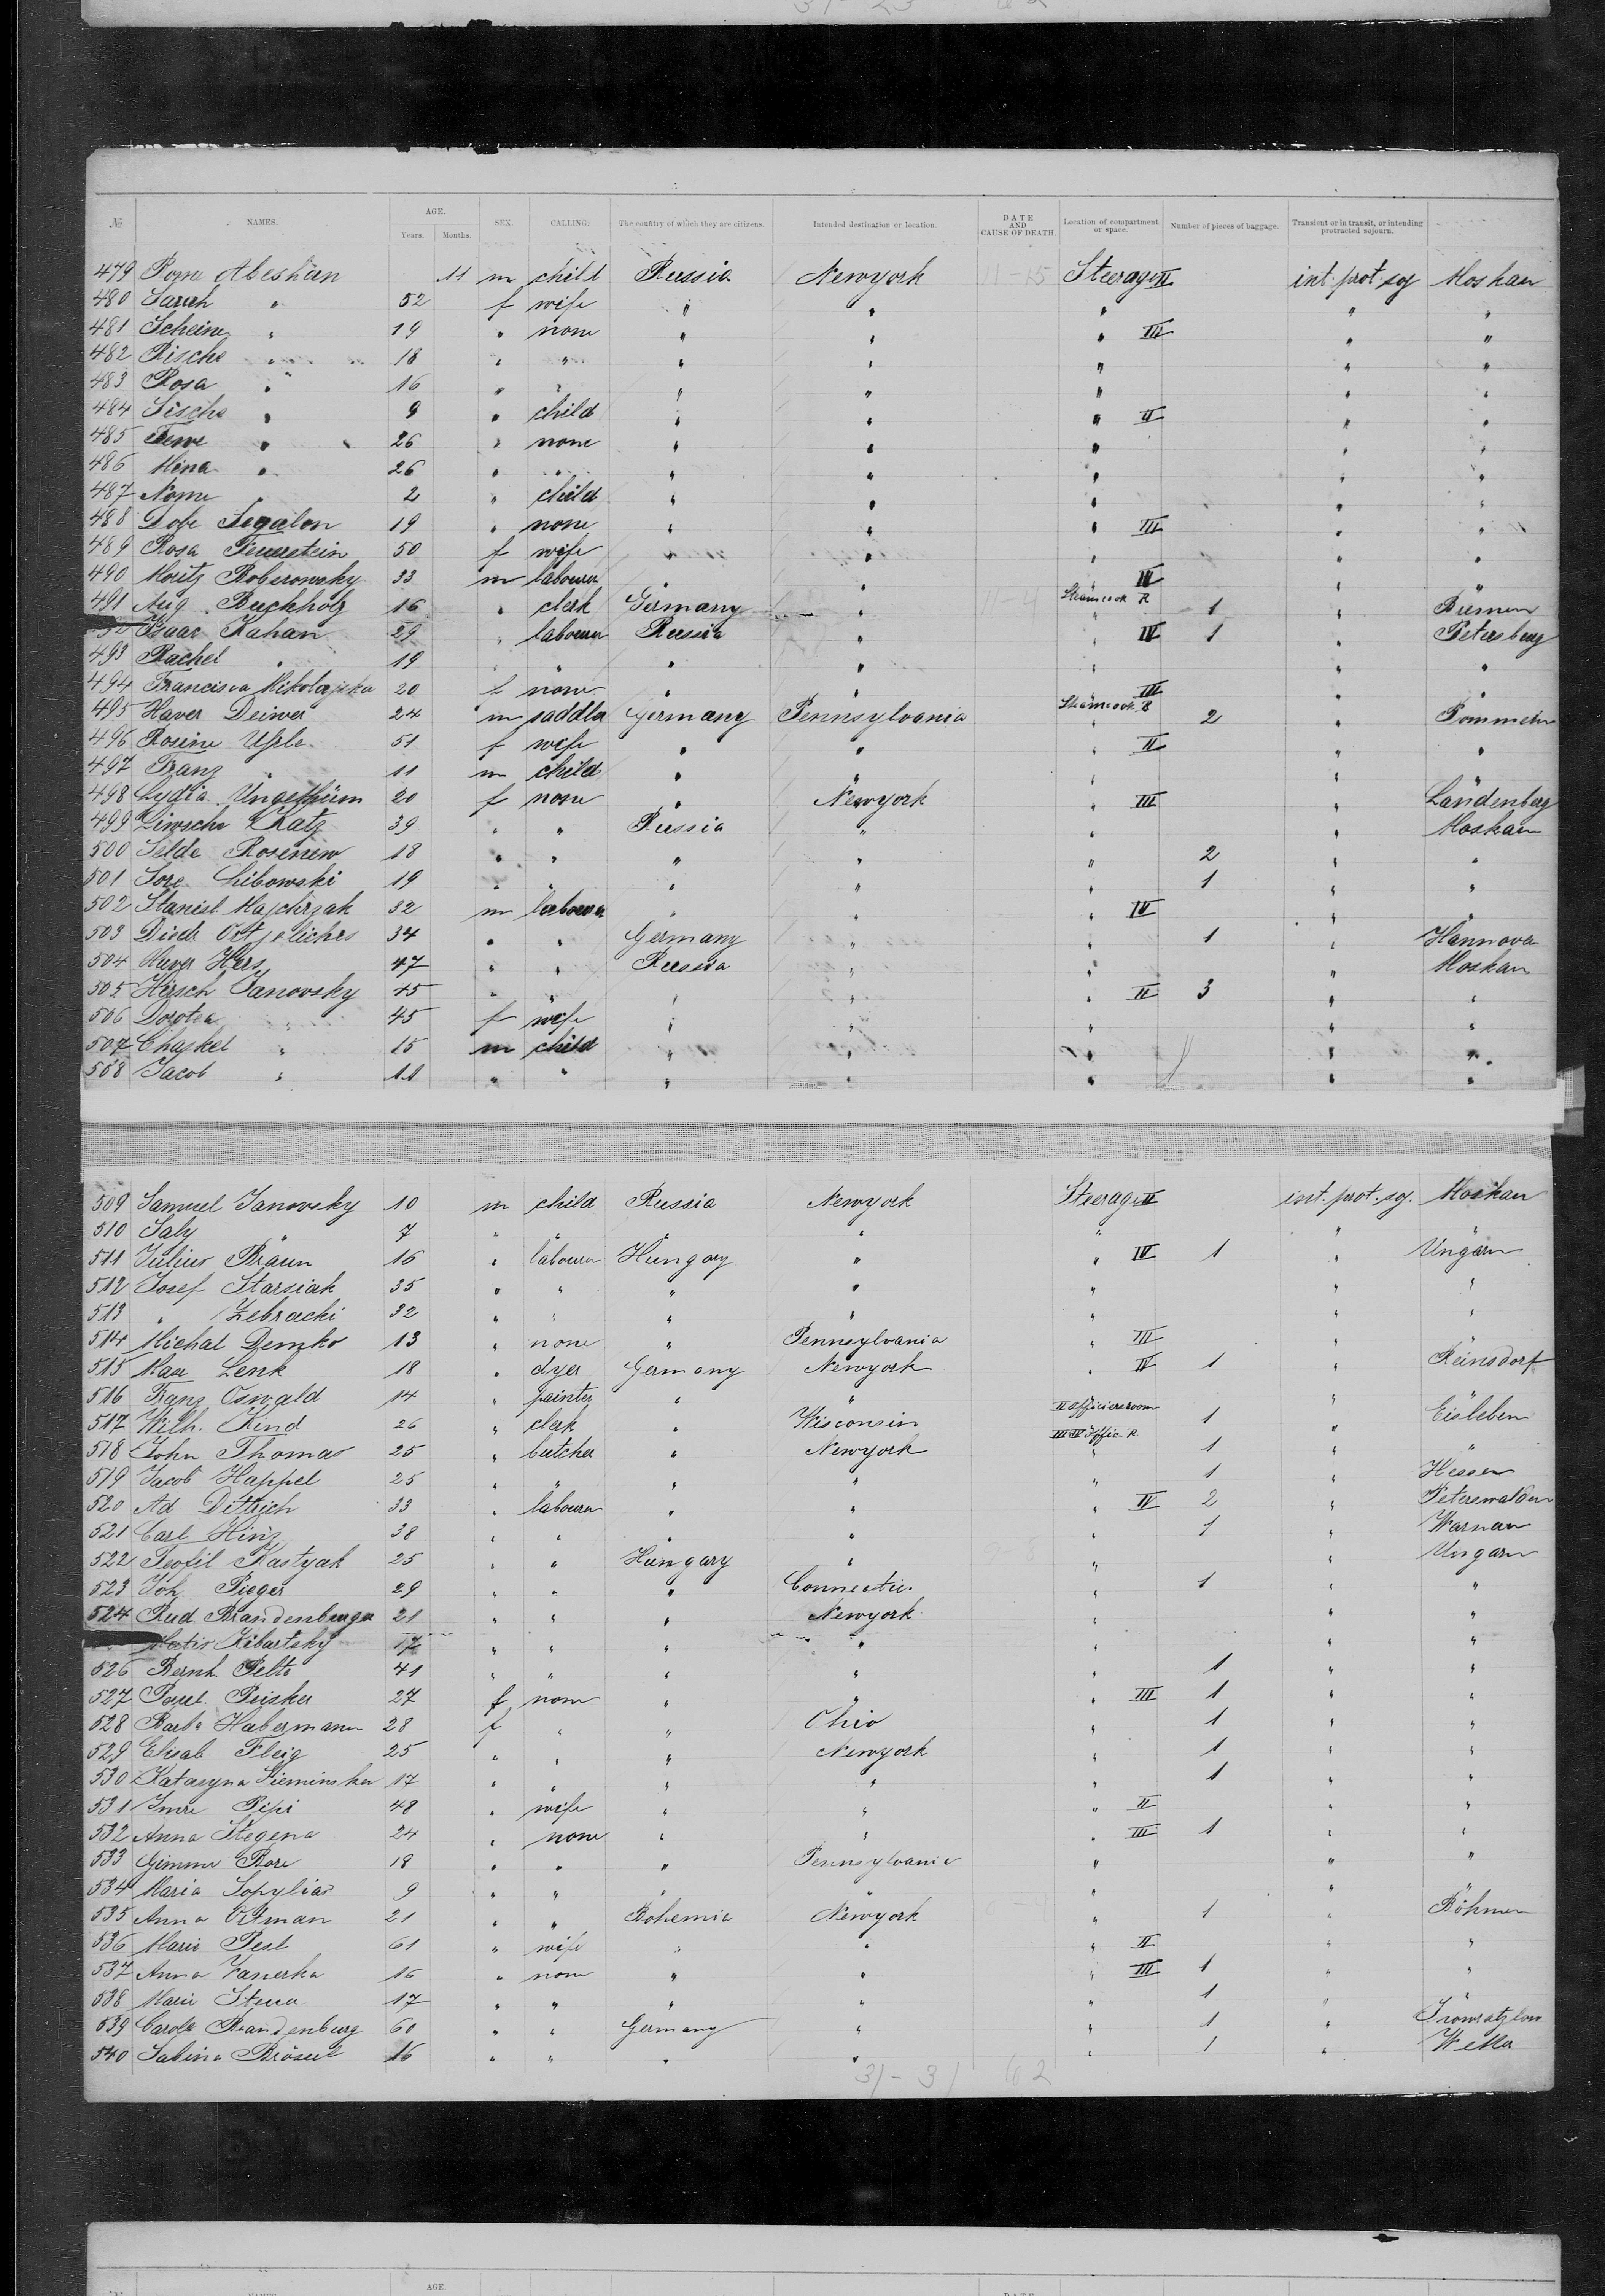 31 - 23 62
№ NAMES. AGE. Years. Months. SEX. CALLING: The country of which they are citizens. Intended destination or location. DATE AND CAUSE OF DEATH. Location of compartment or space. Number of pieces of baggage. Transient or in transit, or intending protracted sojourn.
479 Pome Abeshün 11 m child Russia Newyork 11-15 Steerage II int. prot. soj Moskau
480 Sarah " 52 f wife " " " " "
481 Scheine " 19 " none " " " III " "
482 Rische " 18 " " " " " " "
483 Rosa " 16 " " " " " " "
484 Sische " 9 " child " " " II " "
485 Tewe " 26 " none " " " " "
486 Mina " 26 " " " " " " "
487 Nome " 2 " child " " " " "
488 Dobe Segalon 19 " none " " " III " "
489 Rosa Feuerstein 50 f wife " " " " "
490 Moritz Roberowsky 33 m labourer " " " IV " "
491 Aug. Buchholz 16 " clerk Germany " 11-4 R 1 " Bremen
Isaac Kahan 29 " labourer Russia " " IV 1 " Petersburg
493 Rachel " 19 " " " " " " "
494 Francisca Mikolajska 20 f none " " " III " "
495 Xaver Deiwer 24 m saddler Germany Pennsylvania R 2 " Pommern
496 Rosine 51 f wife " " " II " "
497 Franz " 11 m child " " " "
498 Lydia Ungethüm 20 f none " Newyork " III "
499 Ziwsche Katz 39 " " Russia " " " Moskau
500 Selde Rosenew 18 " " " " " 2 " "
501 Sore Libowski 19 " " " " " 1 " "
502 Stanisl. Majchrzak 32 m labourer " " " IV " "
503 Died. 34 " " Germany " " 1 " Hannover
504 Meyer Hers 47 " " Russia " " " Moskau
505 Hirsch Janovsky 45 " " " " " II 3 " "
506 Dorotea " 45 f wife " " " " "
507 Chaskel " 15 m child " " " " "
508 Jacob " 11 " " " " " " "
509 Samuel Janovsky 10 m child Russia Newyork Steerage II int. prot. soj. Moskau
510 Saly " 7 " " " " " "
511 Julius Braun 16 " labourer Hungary " " IV 1 " Ungarn
512 Josef Starsiak 35 " " " " " " "
513 " Zebracki 32 " " " " " " "
514 Michal Demko 13 " none " Pennsylvania " III "
515 Max Lenk 18 " dyer Germany Newyork " IV 1 " Reinsdorf
516 Franz Oswald 14 " painter " " II Officiersroom "
517 Wilh. Kind 26 " clerk " Wisconsin III IV Offic. R 1 " Eisleben
518 John Thomas 25 " butcher " Newyork " 1 " "
519 Jacob Happel 25 " " " " " 1 " Hessen
520 Ad Dittrich 33 " labourer " " " IV 2 " Peterswalden
521 Carl Hinz 38 " " " " " 1 " Warnau
522 Teofil Kastyak 25 " " Hungary " " " Ungarn
523 Joh Pieger 29 " " " Connectic. " 1 " "
524 Rud Brandenburger 21 " " " Newyork " " "
Matis Kibartsky 17 " " " " " " "
526 Bernh. Pelte 41 " " " " " 1 " "
527 Paul. Peisker 27 f none " " " III 1 " "
528 Barba Habermann 28 f " " Ohio " 1 " "
529 Elisab Fleig 25 " " " Newyork " 1 " "
530 Katarzyna Sieminska 17 " " " " " 1 " "
531 Imre Pipi 48 " wife " " " II " "
532 Anna Stegena 24 " none " " " III 1 " "
533 Gimme Bore 18 " " " Pennsylvania " " "
534 Maria Sopylias 9 " " " " " " "
535 Anna Vitman 21 " " Bohemia Newyork " 1 " Böhmen
536 Marie Pesl 61 " wife " " " II " "
537 Anna Vanerka 16 " none " " " III 1 " "
538 Marie Stena 17 " " " " " 1 " "
539 Carole Brandenburg 60 " " Germany " " 1 "
540 Sabina Bröseel 16 " " " " " 1 " Wetter
31 - 31 62
№ NAMES. AGE. DATE